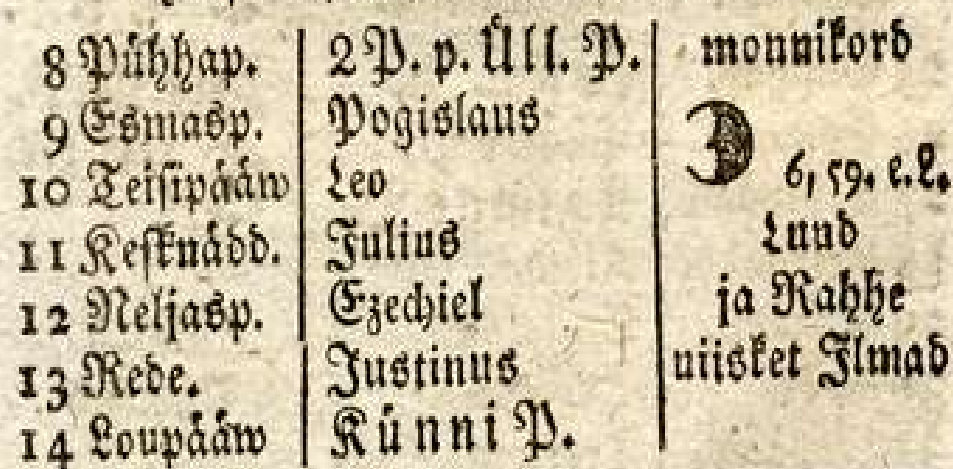 8 Pühhap. 2 P. p. Üll. P. monnikord
9 Esmasp. Pogislaus
10 Teisipääw Leo 6, 59. e. L.
11 Kesknädd. Julius Lund
12 Neljasp. Ezechiel ja Rahhe
13 Rede. Justinus niisket Ilmad
14 Loupääw Künni P.